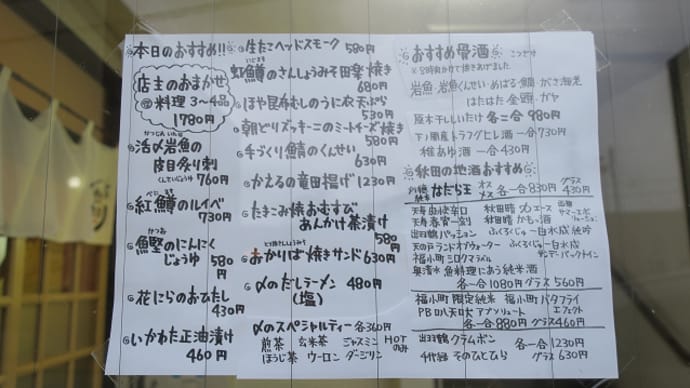 本日のおすすめ!!
店主のおまかせ
料理 3〜4品
1780円
かつじめ いわな
活〆岩魚の
皮目炙り刺
くんせいじょうゆ 760円
べに ます
紅鱒のルイベ
730円
かつお
魚堅のにんにく
じょうゆ 580円
花にらのおひたし
430円
いかわた正油漬け
460円
生たこヘッドスモーク 580円
虹鱒のさんしょうみそ田楽焼き
680円
ほや昆布むしのうに衣天ぷら
530円
朝どりズッキーニのミートチーズ焼き
580円
手づくり鯖のくんせい
630円
かえるの竜田揚げ 1230円
たきこみ焼おむすび
あんかけ茶漬け
580円
おかりば焼きサンド 630円
〆のだしラーメン 480円
(塩)
〆のスペシャルティー 各360円
煎茶 玄米茶 ジャスミン HOT
ほうじ茶 ウーロン ダージリン のみ
おすすめ骨酒 こつざけ
※8時間かけて焼きあげました
岩魚・岩魚くんせい・めばる・鯛・がさ海老
はたはた 金頭 ガヤ
原木干ししいたけ 各二合 980円
下関産トラフグヒレ酒 一合 730円
稚あゆ酒 一合 430円
秋田の地酒おすすめ
なだら王 オス メス 各一合 830円 グラス 430円
天寿 曲快辛口 秋田晴
天寿 春寳一刻 秋田晴 かもの酒
出羽鶴パッション ふくろじゅー白水成 純吟
天の戸ランドオブウォーター ふくろじゅー白水成
福小町シロクマラベル
奥清水 魚料理にあう純米酒
各一合 1080円 グラス 560円
福小町 限定純米 福小町 バタフライ
エフェクト
各一合 880円 グラス 460円
出羽鶴 クラムボン 各一合 1230円
4代経 そのひとひら グラス 630円